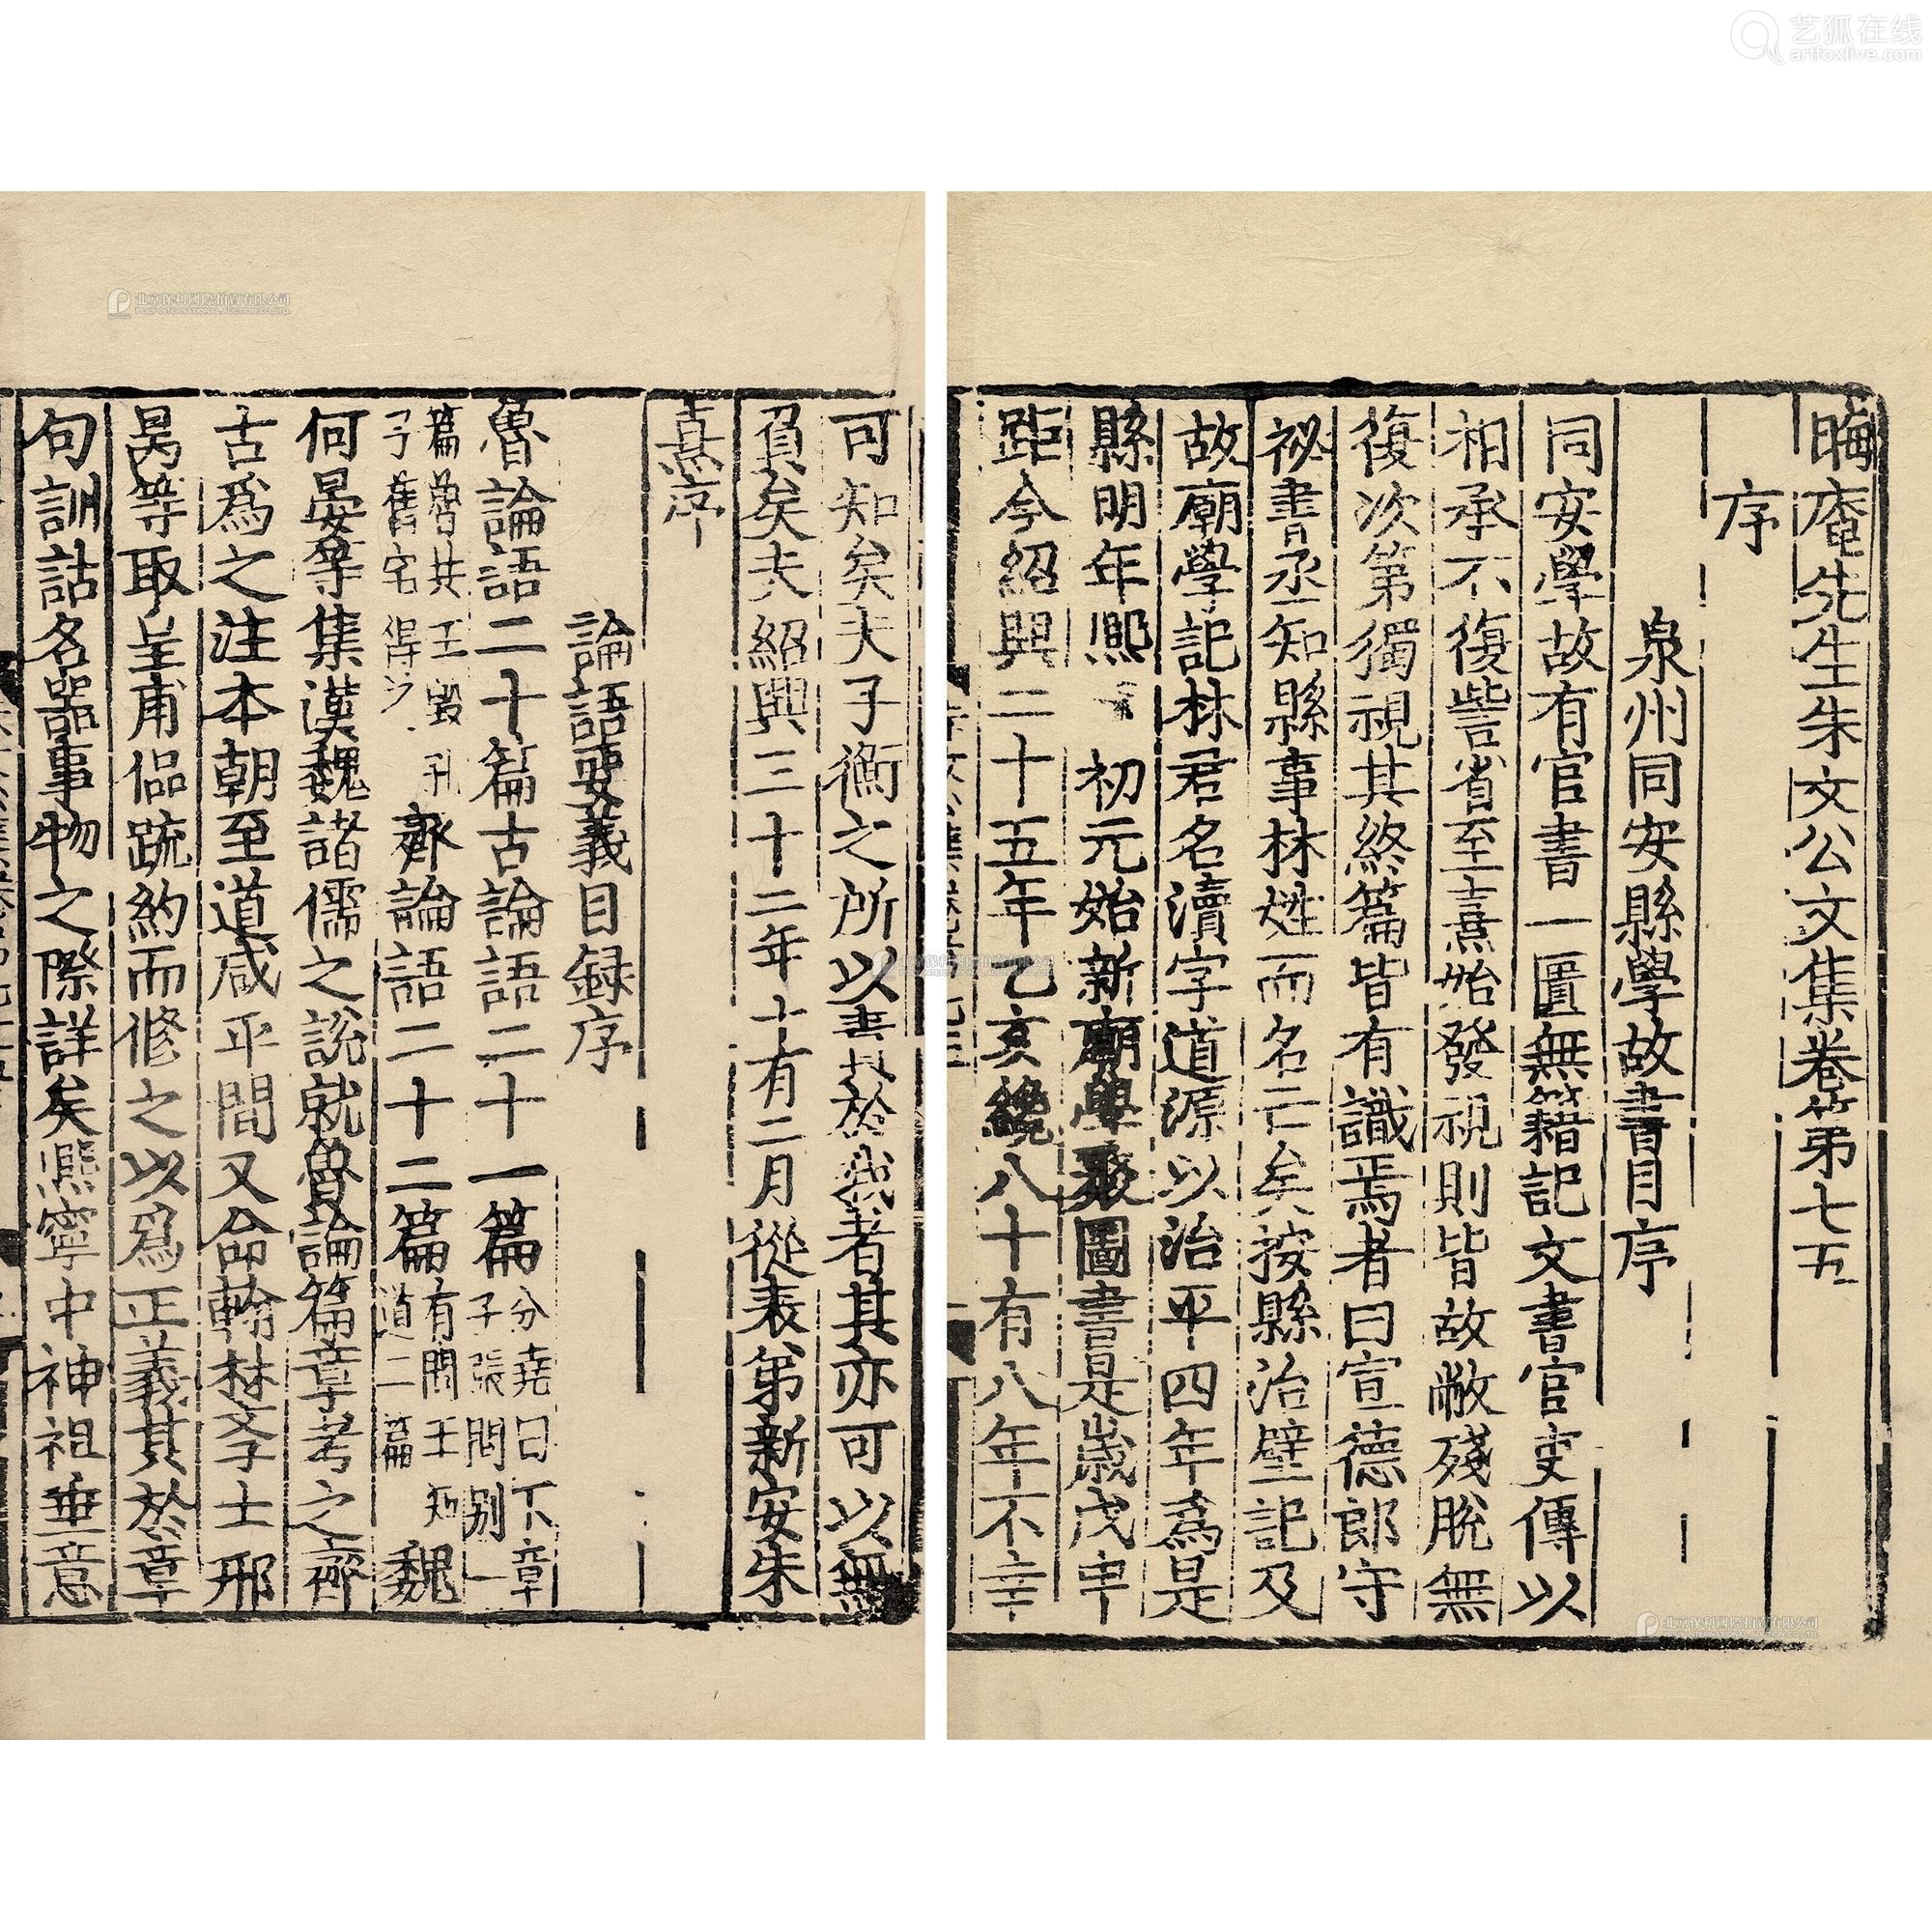 晦庵先生朱文公文集卷第七五
序
泉州同安縣學故書目序
同安學故有官書一匱無籍記文書官吏傳以
相承不復訾省至熹始發視則皆故敝殘脫無
復次第獨視其終篇皆有識焉者曰宣德郎守
祕書丞知縣事林姓而名亡矣按縣治壁記及
故廟學記林君名瀆字道源以治平四年為是
縣明年熙 初元始新廟學聚圖書是歲戊申
距今紹興二十五年乙亥纔八十有八年不幸
可知矣夫子衡之所以書其於我者其亦可以無
負矣夫紹興三十二年十有二月從表弟新安朱
熹序
論語要義目録序
魯論語二十篇古論語二十一篇分堯曰下章
子張問別一
篇魯共王毀孔
子舊宅得之齊論語二十二篇有問王知
道二篇魏
何晏等集漢魏諸儒之說就魯論篇章考之齊
古為之注本朝至道咸平間又命翰林學士邢
昺等取皇甫侃疏約而修之以為正義其於章
句訓詁名器事物之際詳矣熙寧中神祖垂意
艺狐在线
artfoxlive.com
北京保利國際拍賣有限公司
POLY INTERNATIONAL AUCTION CO.,LTD.